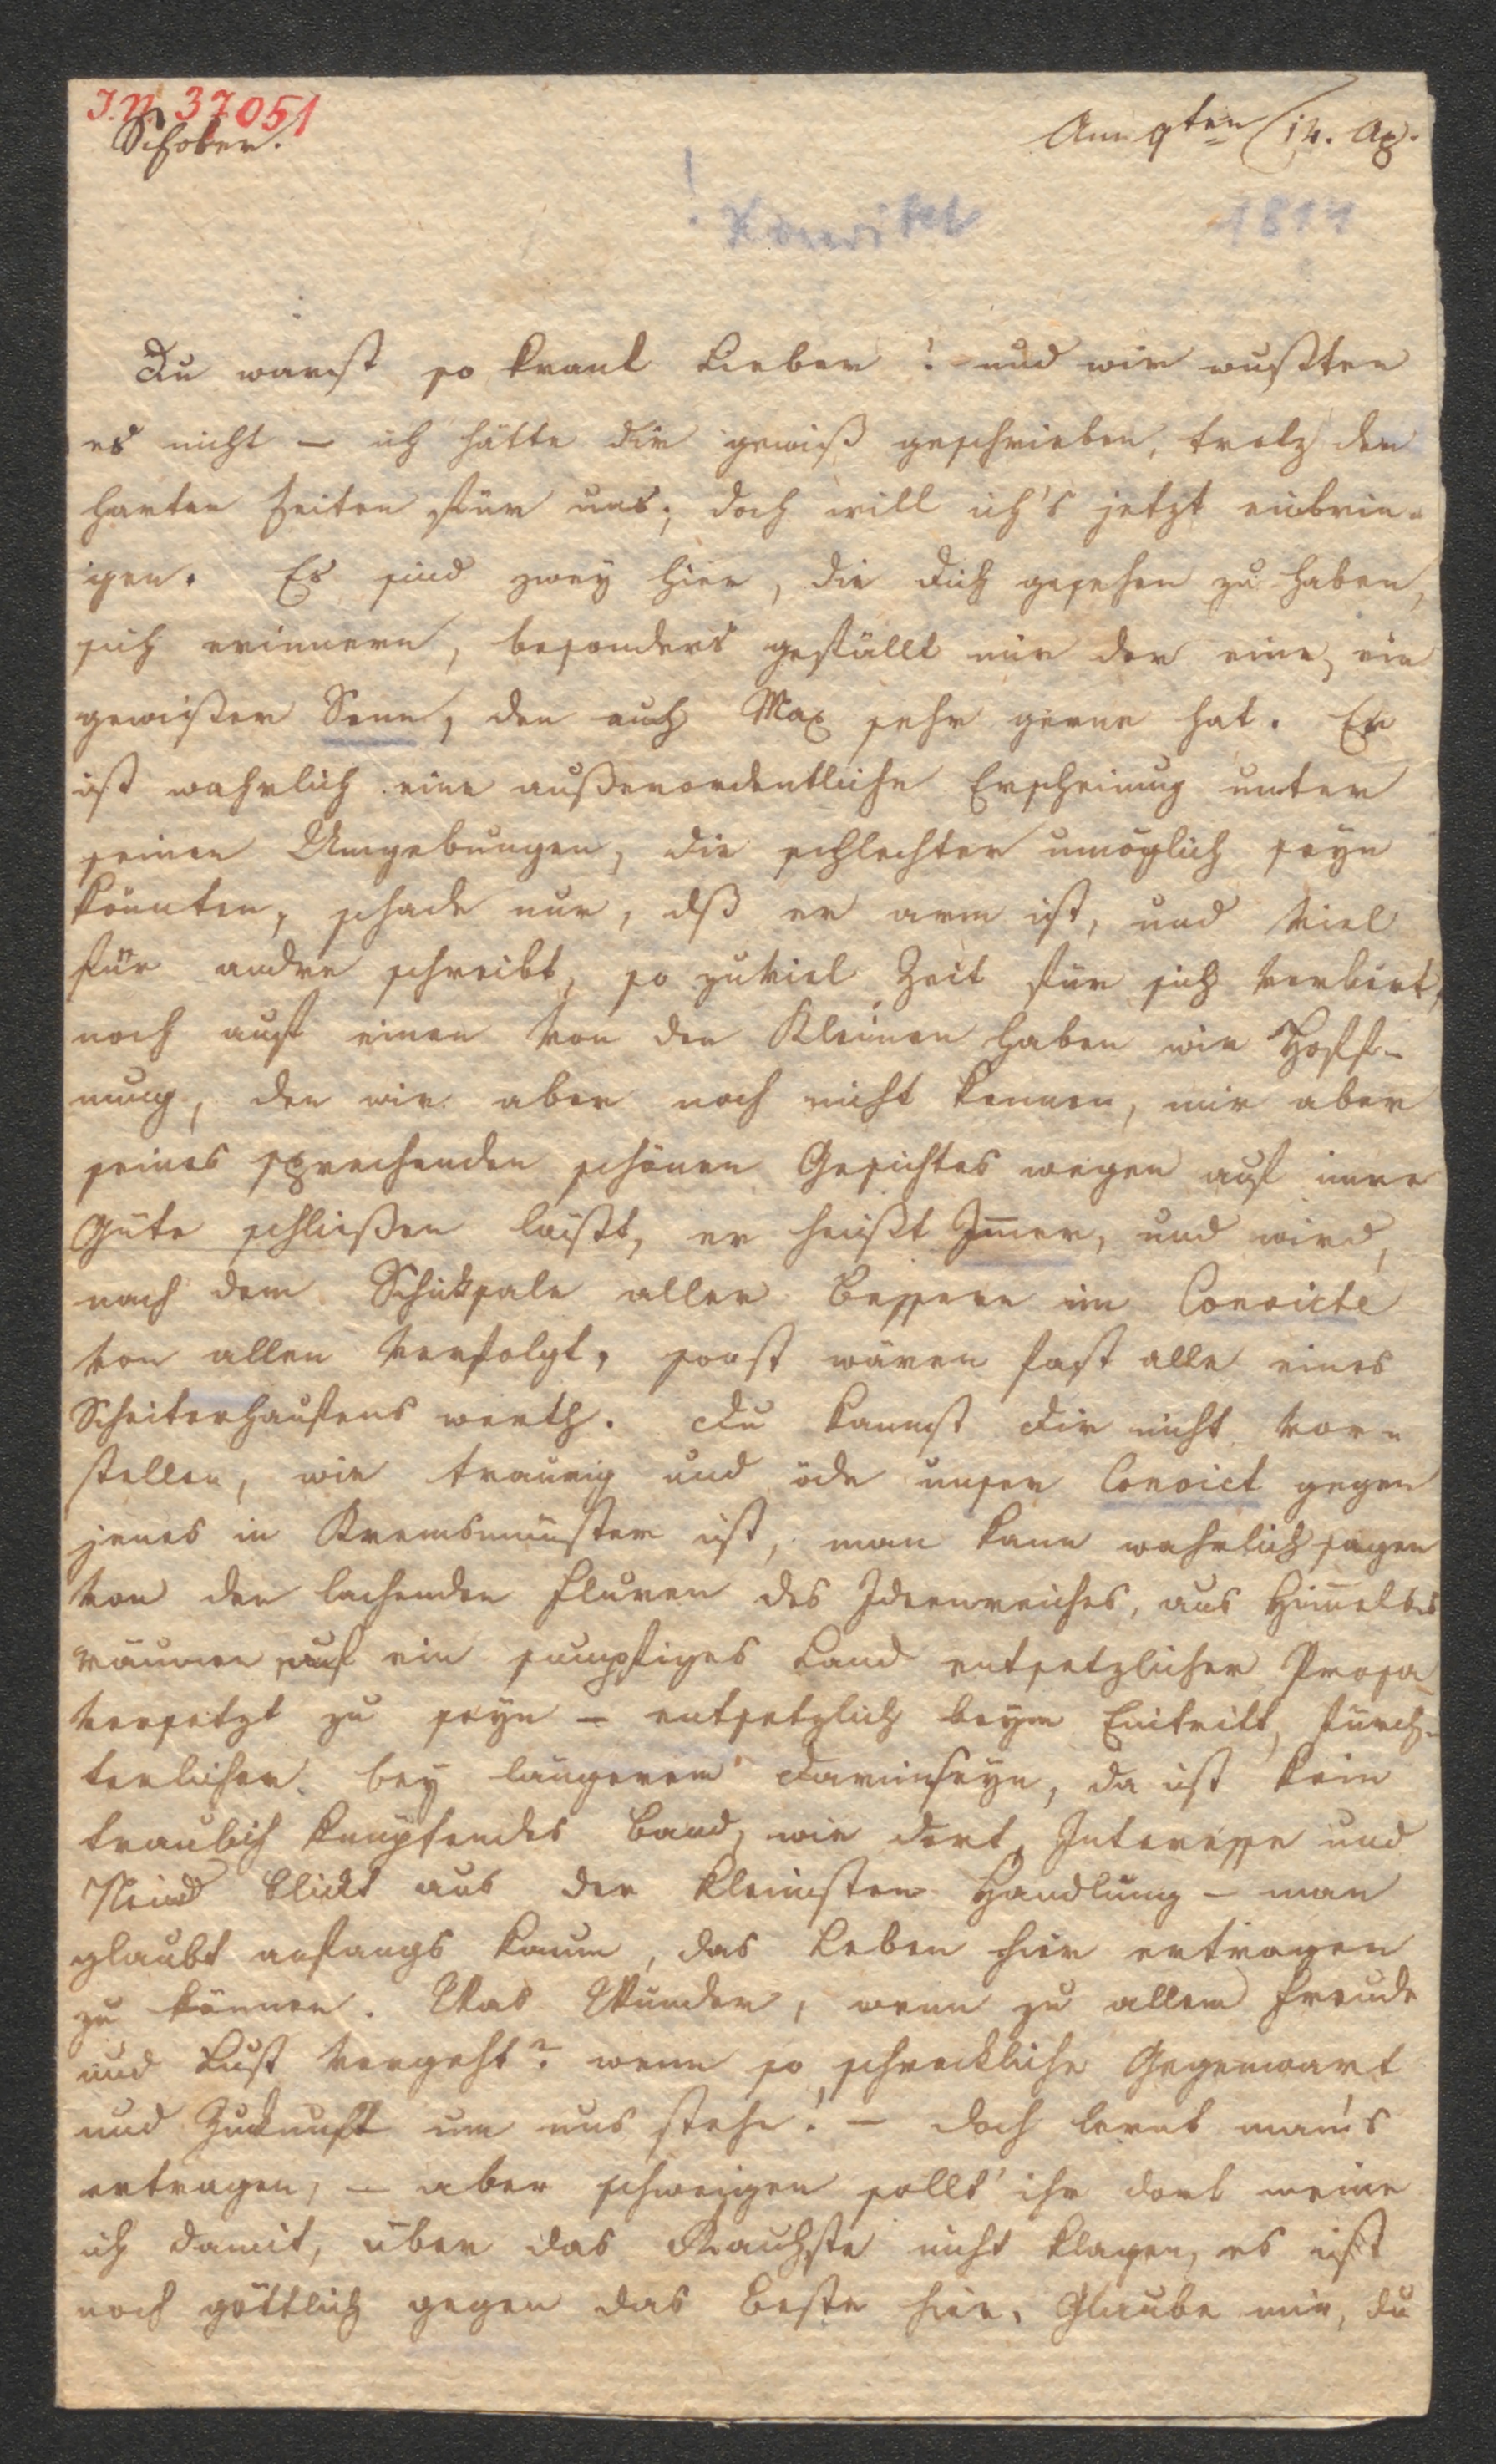 I.N. 37051
Schober.
Am 9ten /14. Ap.
! Konvikt 1814
Du warst so krank Lieber! und wir wußten
es nicht – ich hätte dir gewiß geschrieben, trotz den
harten Zeiten für uns; doch will ich's jetzt einbrin-
gen. Es sind zwey hier, die dich gesehen zu haben,
sich erinnern, besonders gefällt mir der eine, ein
gewißer Senn, den auch Max sehr gerne hat. Er
ist wahrlich eine außerordentliche Erscheinung unter
seinen Umgebungen, die schlechter unmöglich seyn
könnten, schade nur, dß er arm ist, und viel
für andre schreibt, so zuviel Zeit für sich verliert,
noch auf einen von den Kleinen haben wir Hoff-
nung, den wir aber noch nicht kennen, mir aber
seines sprechenden schönen Gesichtes wegen auf innre
Güte schließen läßt, er heißt Im̄er, und wird,
nach dem Schiksale aller Bessern im Convicte
von allen verfolgt, sonst wären fast alle eines
Scheiterhaufens werth. Du kannst dir nicht vor-
stellen, wie traurig und öde unser Convict gegen
jenes in Kremsmünster ist, man kann wahrlich sagen
von den lachenden Fluren des Ideenreiches, aus Him̄els
räumen auf ein sumpfiges Land entsetzlicher Prosa
versetzt zu seyn – entsetzlich beym Eintritt, fürch-
terlicher bey längerem Darinseyn, da ist kein
traulich knüpfendes Band, wie dort, Interesse und
Neid blickt aus der kleinsten Handlung – man
glaubt anfangs kaum, das Leben hier ertragen
zu können. Was Wunder, wenn zu allem Freude
und Lust vergeht? wenn so schreckliche Gegenwart
und Zukunft um uns stehe! – doch lernt man's
ertragen, – aber schweigen sollt' ihr dort meine
ich damit, über das Rauhste nicht klagen, es ist
noch göttlich gegen das Beste hier. Glaube mir, du